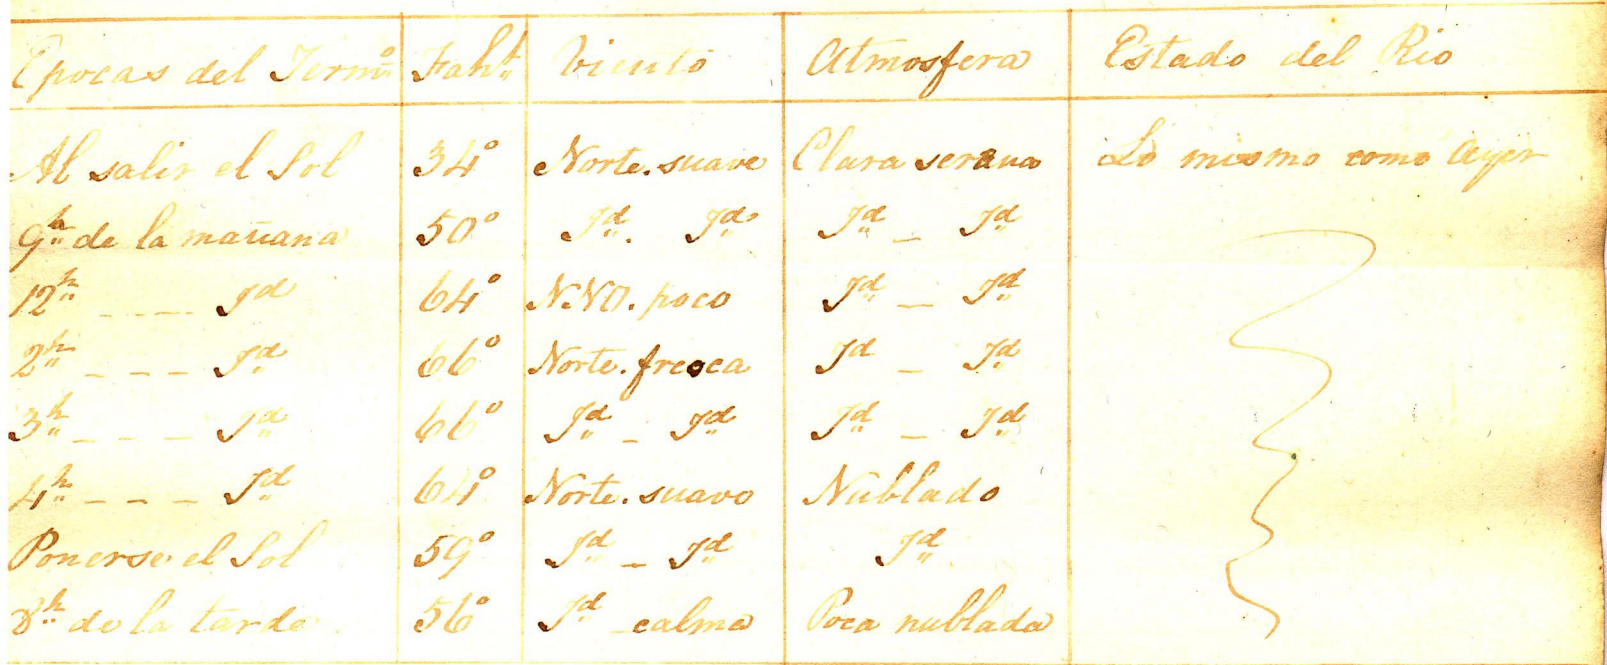 Epocas del Term.º Fahᵗ Viento Atmosfera Estado del Rio
Al salir el Sol 34° Norte. suave Clara serena Lo mismo como ayer
9ʰ de la mañana 50° Jᵈ. Jᵈ Jᵈ _ Jᵈ
12ʰ _ _ _ _ Jᵈ 64° NNO. poco Jᵈ _ Jᵈ
2ʰ _ _ _ Jᵈ 66° Norte. fresca Jᵈ _ Jᵈ
3ʰ _ _ _ Jᵈ 66° Jᵈ _ Jᵈ Jᵈ _ Jᵈ
4ʰ _ _ _ Jᵈ 64° Norte. suave Nublado
Ponerse el Sol 59° Jᵈ _ Jᵈ Jᵈ
8ʰ de la tarde 56° Jᵈ _ calma Poca nublada